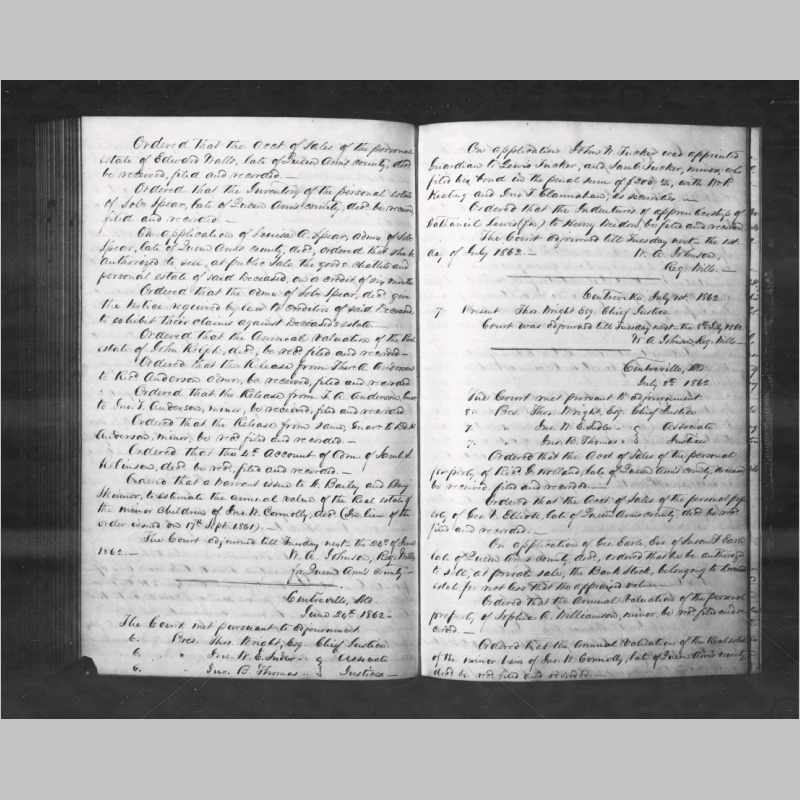 Ordered that the Acct of Sales of the personal
estate of Edward Walls, late of Queen Ann's county, decd
be received, filed and recorded. —
Ordered that the Inventory of the personal estate
of Spear, late of Queen Ann's county, decd be received
filed and recorded —
On application of Louisa A. Spear, admx of
Spear, late of Queen Ann's county, decd, ordered that she be
authorized to sell, at public sale the goods chattels and
personal estate of said deceased, on a credit of six months
Ordered that the admx of Spear, decd give
the notice required by law to creditors of said deceased
to exhibit their claims against deceased's estate —
Ordered that the Annual Valuation of the Real
estate of John decd, be recd filed and recorded —
Ordered that the Release from A. Anderson
to Anderson be received, filed and recorded
Ordered that the Release from T. A. Anderson,
to Jno. T. Anderson, minor, be received, filed and recorded
Ordered that the Release from same, to
Anderson, minor, be recd filed and recorded. —
Ordered that the Account of Adm. of Saml S.
decd be recd, filed and recorded. —
Ordered that a Warrant issue to Bailey and
Skinner, to estimate the annual value of the Real estate of
the minor children of Jno. W. Connolly, decd (In lieu of the
order issued on 17th Sept. 1861). —
The Court adjourned till Tuesday next the 24th of June
1862 — W. A. Johnson, Reg. Wills
for Queen Ann's County —
Centreville, Md.
June 24th 1862 —
The Court met pursuant to adjournment
6. Pres. Thos. Wright, Esq. Chief Justice
6. " Jno. W. E. Sudler — } Associate
6. " Jno. B. Thomas — } Justices —
On application John W. Tucker was appointed
Guardian to Lewis Tucker, and Saml Tucker, minors, who
filed his bond in the penal sum of $200 with
Keating and Jno. F. as securities —
Ordered that the Indentures of apprenticeship of
Nathaniel to Henry be filed and recorded
The Court adjourned till Tuesday next the 1st
day of July 1862 — W. A. Johnson,
Reg. Wills —
Centreville, July 1st 1862
7. Present Thos. Wright Esq. Chief Justice
Court was adjourned till Tuesday next the 8th July 1862
W. A. Johnson, Reg. Wills —
Centreville, Md.
July 8th 1862
The Court met pursuant to adjournment
Pres. Thos. Wright, Esq. Chief Justice
7. " Jno. W. E. Sudler — } Associate
7. " Jno. B. Thomas — } Justices
Ordered that the Acct of Sales of the personal
property of Holland, late of Queen Ann's county deceased
be received, filed and recorded —
Ordered that the Acct of Sales of the personal
of Geo. Elliott, late of Queen Ann's county, decd be recd
filed and recorded. —
On application of Geo. Earle, Exr of Susan Earle
late of Queen Ann's county, decd, ordered that he be authorized
to sell, at private sale, the Bank Stock, belonging to
estate for not less than the appraised value. —
Ordered that the Annual Valuation of the personal
property of Sophia A. Williamson, minor, be recd filed and
—
Ordered that the Annual Valuation of the Real estate
of the minor heirs of Jno. W. Connolly, late of Queen Ann's county
decd be recd filed and recorded. —